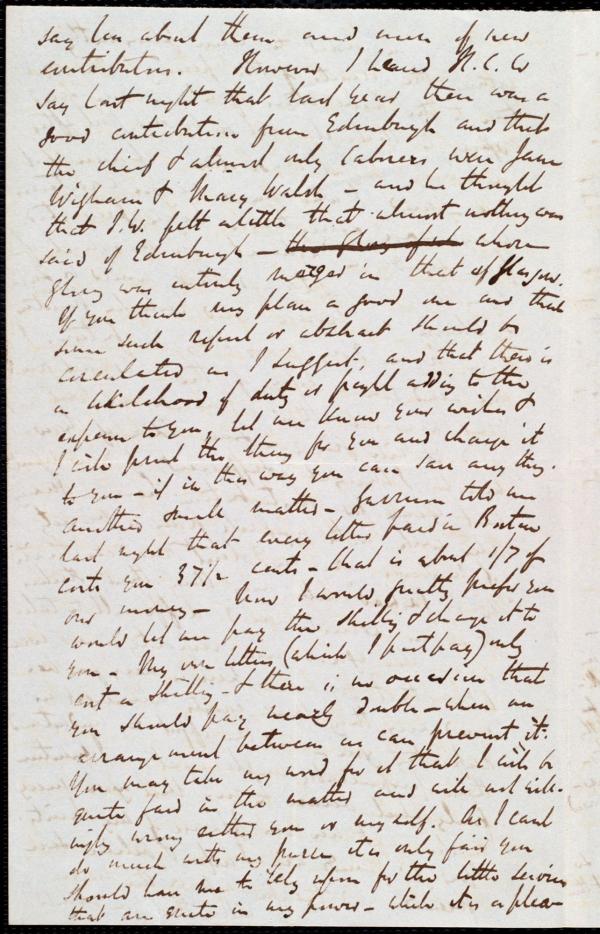 say less about them and more of new
contributors. However I heard H. C. W
say last night that last year there was a
good contribution from Edinburgh and that
the chief & almost only laborers were Jane
Wigham & Mary Walsh – and he thought
that J.W. felt a little that almost nothing was
said of Edinburgh – whose
glory was entirely merged in that of Glasgow.
If you think my plan a good one and that
some such report or abstract should be
circulated as I suggest, and that there is
a likelihood of duty or freight adding to the
expense to you, let me know your wishes &
I will print the thing for you and charge it
to you – if in this way you can save any thing.
Another small matter – Garrison told me
last night that every letter paid in Boston
costs you 37½ cents – that is about 1/7 of
our money – Now I would greatly prefer you
would let me pay the shilling & charge it to
you – My own letters (which I post pay) only
cost a shilling – & there is no occasion that
you should pay nearly double – when an
arrangement between us can prevent it.
You may take my word for it that I will be
quite fair in the matter and will not will-
ingly wrong either you or myself. As I cant
do much with my purse it is only fair you
should have me to rely upon for the little services
that are quite in my power – which it is a plea-